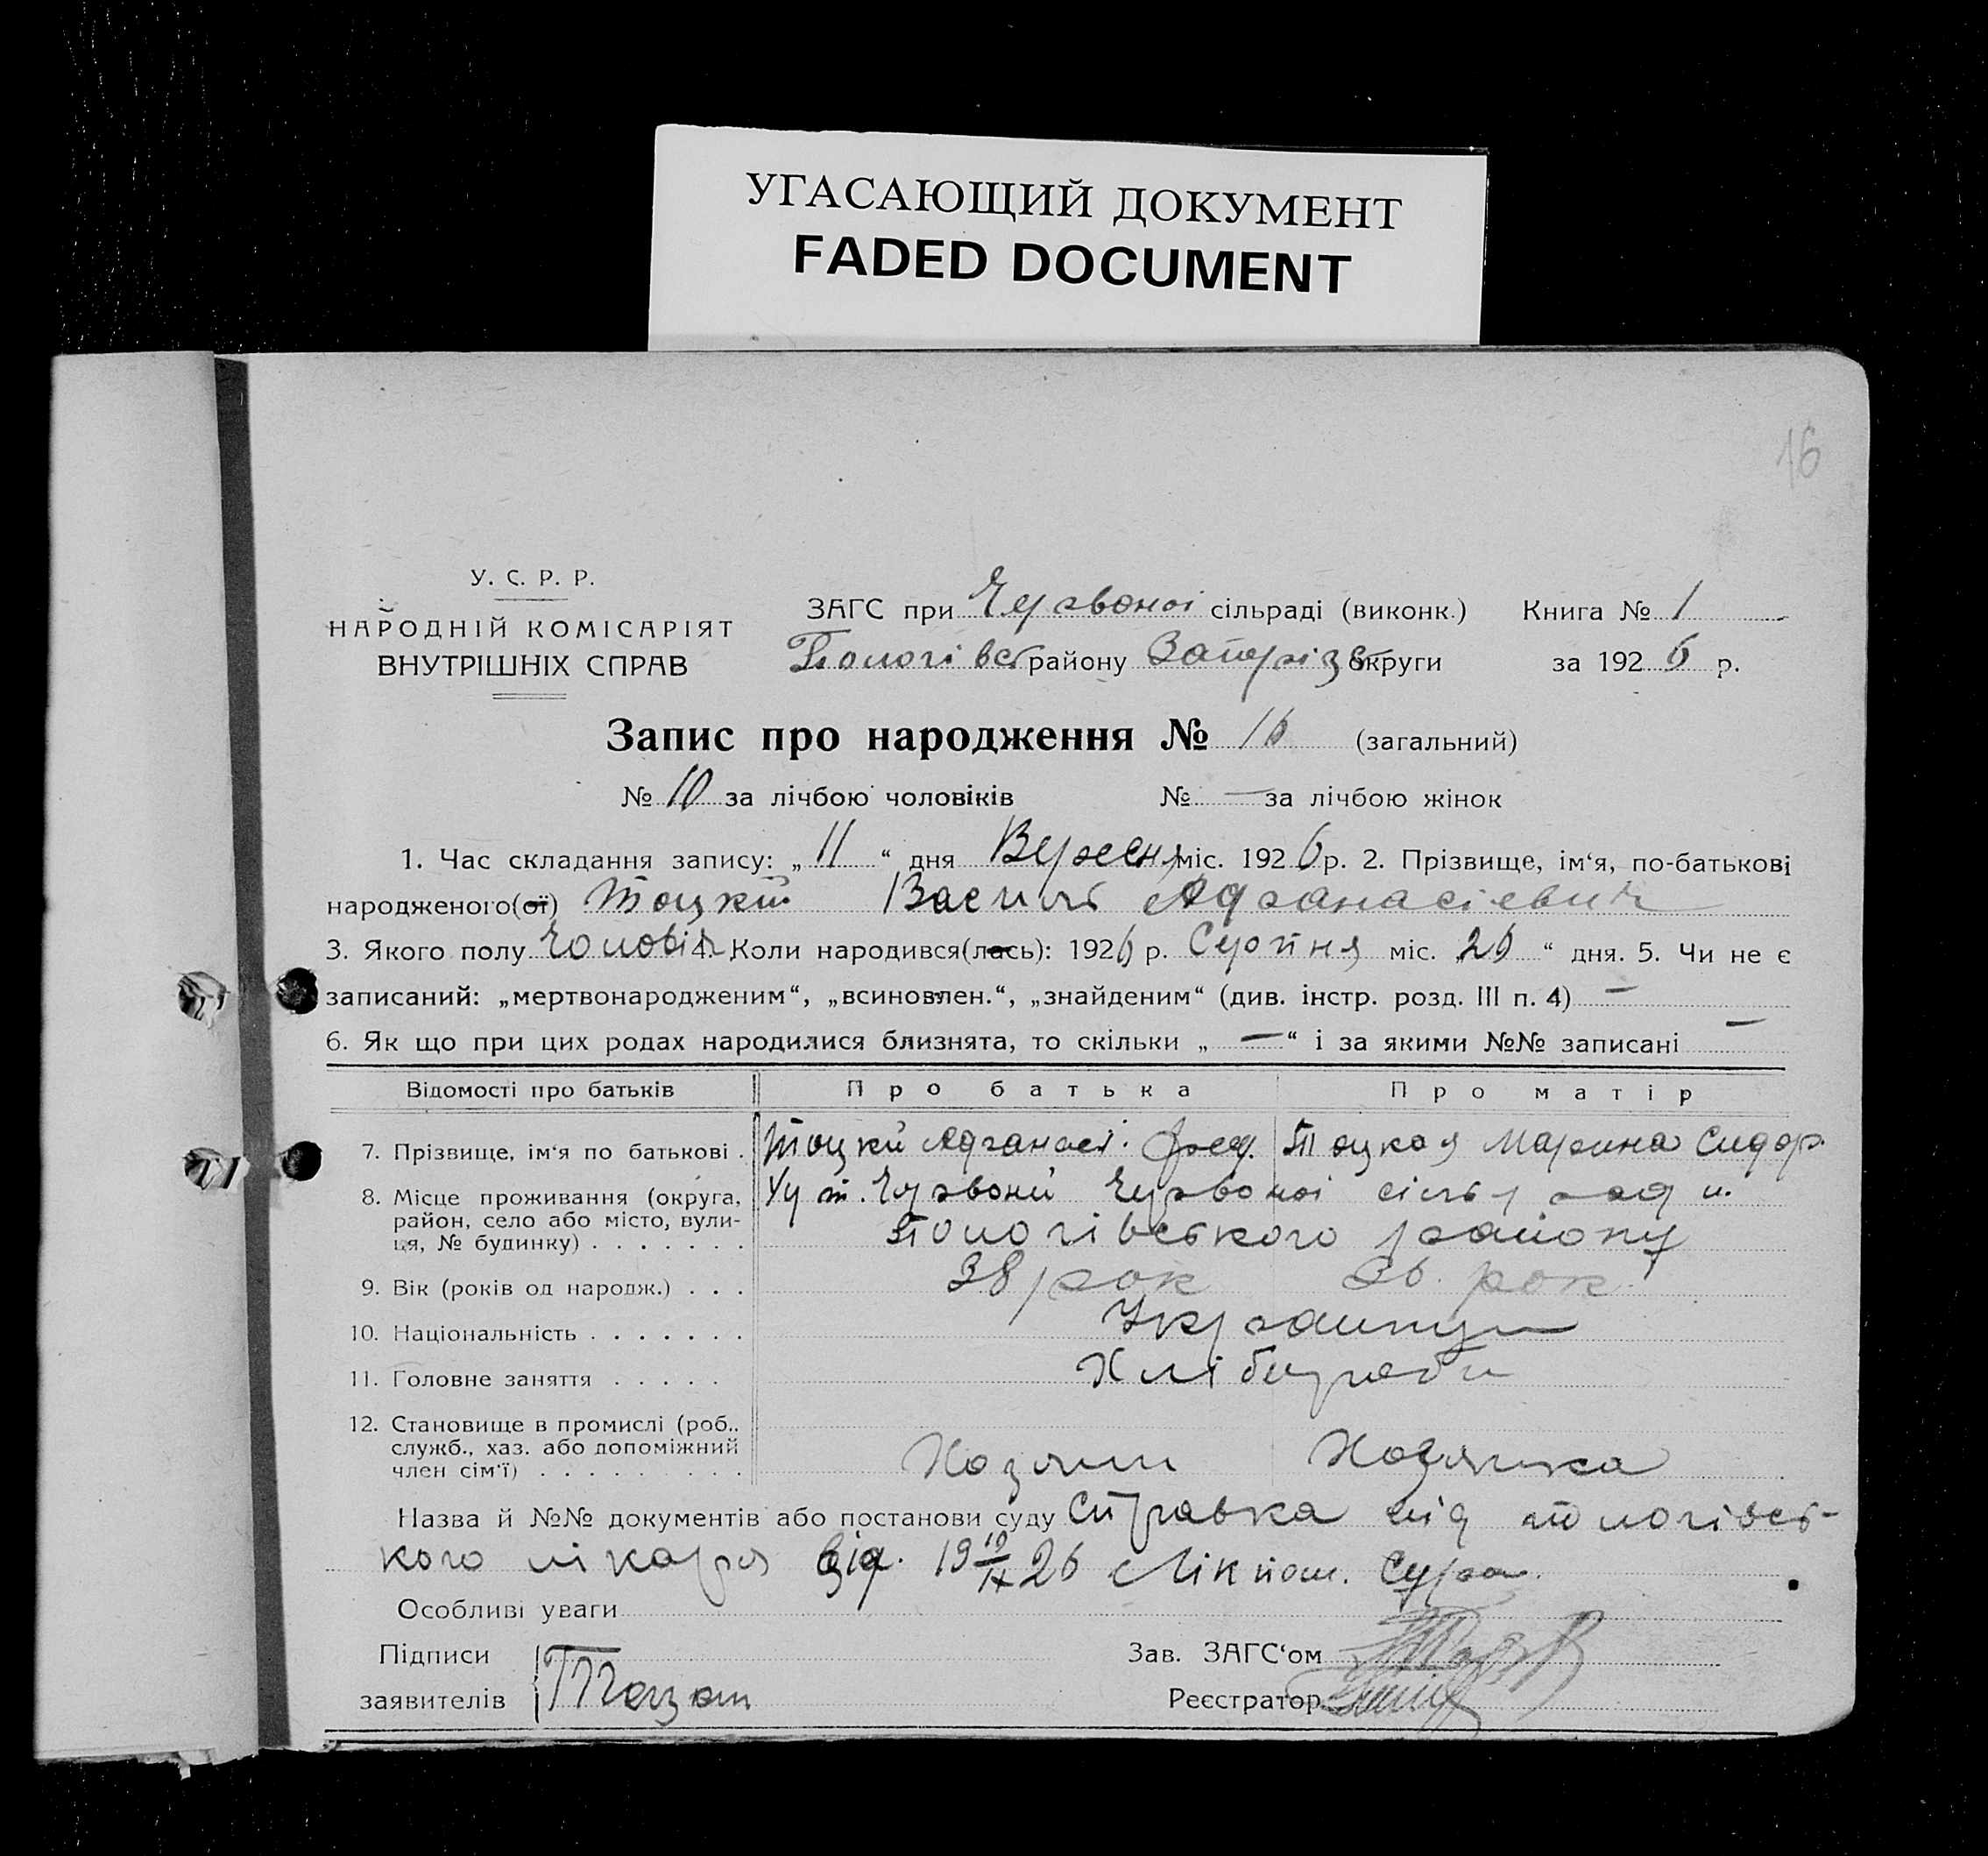 УГАСАЮЩИЙ ДОКУМЕНТ
FADED DOCUMENT
16
У. С. Р. Р.
НАРОДНІЙ КОМІСАРІЯТ
ВНУТРІШНІХ СПРАВ
ЗАГС при Червоноі сільраді (виконк.) Книга № 1
Пологівсь району Запоріз округи за 1926 р.
Запис про народження № 16 (загальний)
№ 10 за лічбою чоловіків № — за лічбою жінок
1. Час складання запису: „11“ дня Вересня міс. 1926 р. 2. Прізвище, ім‘я, по-батькові
народженого(ої) Тоцкій Василь Афанасієвич
3. Якого полу Чоловіч 4. Коли народився(лась): 1926 р. Серпня міс. 26 “ дня. 5. Чи не є
записаний: „мертвонародженим“, „всиновлен.“, „знайденим“ (див. інстр. розд. III п. 4) —
6. Як що при цих родах народилися близнята, то скільки „ — “ і за якими №№ записані —
Відомості про батьків Про батька Про матір
7. Прізвище, ім‘я по батькові . Тоцкий Афанасі. Фед. Тоцкая Марина Сидор.
8. Місце проживання (округа, Червоний Червоноі сільради
район, село або місто, вули- Пологівського району
ця, № будинку) . . . . . . .
9. Вік (років од народж.) . . . 38 рок 36 рок
10. Національність . . . . . . . Українци
11. Головне заняття . . . . . Хлібороби
12. Становище в промислі (роб.,
служб., хаз. або допоміжний
член сім‘ї) . . . . . . . . . Хозяин Хозяика
Назва й №№ документів або постанови суду Справка від пологівсь-
кого лікаря від. 19 10/IX 26
Особливі уваги
Підписи Зав. ЗАГС‘ом
заявителів Реєстратор